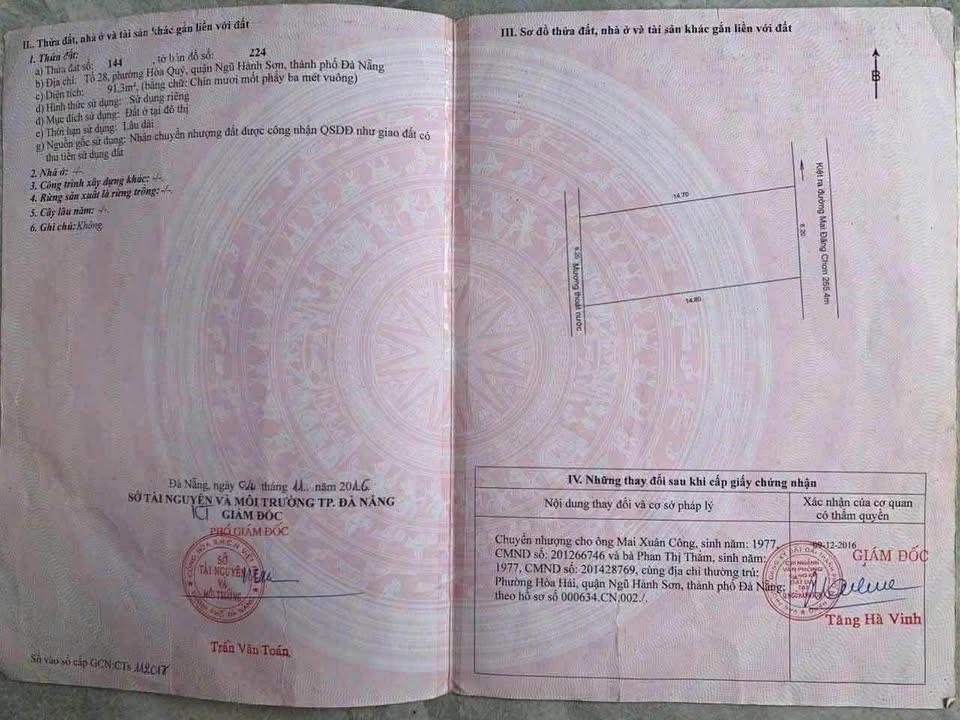 II. Thửa đất, nhà ở và tài sản khác gắn liền với đất
1. Thửa đất:
a) Thửa đất số: 144 , tờ bản đồ số: 224
b) Địa chỉ: Tổ 28, phường Hòa Quý, quận Ngũ Hành Sơn, thành phố Đà Nẵng
c) Diện tích: 91,3m², (bằng chữ: Chín mươi mốt phẩy ba mét vuông)
d) Hình thức sử dụng: Sử dụng riêng
đ) Mục đích sử dụng: Đất ở tại đô thị
e) Thời hạn sử dụng: Lâu dài
g) Nguồn gốc sử dụng: Nhận chuyển nhượng đất được công nhận QSDĐ như giao đất có
thu tiền sử dụng đất
2. Nhà ở: -/-.
3. Công trình xây dựng khác: -/-.
4. Rừng sản xuất là rừng trồng: -/-.
5. Cây lâu năm: -/-.
6. Ghi chú: Không.
Đà Nẵng, ngày 04 tháng 11 năm 2016
SỞ TÀI NGUYÊN VÀ MÔI TRƯỜNG TP. ĐÀ NẴNG
KT GIÁM ĐỐC
PHÓ GIÁM ĐỐC
SỞ
TÀI NGUYÊN
VÀ
MÔI TRƯỜNG
Trần Văn Toán
Số vào sổ cấp GCN:CTs
III. Sơ đồ thửa đất, nhà ở và tài sản khác gắn liền với đất
B
14.70
6.20
Kiệt ra đường Mai Đăng Chơn 255.4m
6.20
Mương thoát nước
14.80
IV. Những thay đổi sau khi cấp giấy chứng nhận
Nội dung thay đổi và cơ sở pháp lý
Xác nhận của cơ quan
có thẩm quyền
Chuyển nhượng cho ông Mai Xuân Công, sinh năm: 1977,
CMND số: 201266746 và bà Phan Thị Thắm, sinh năm:
1977, CMND số: 201428769, cùng địa chỉ thường trú:
Phường Hòa Hải, quận Ngũ Hành Sơn, thành phố Đà Nẵng;
theo hồ sơ số 000634.CN.002./.
09-12-2016
GIÁM ĐỐC
CHI NHÁNH
VĂN PHÒNG
Tăng Hà Vinh